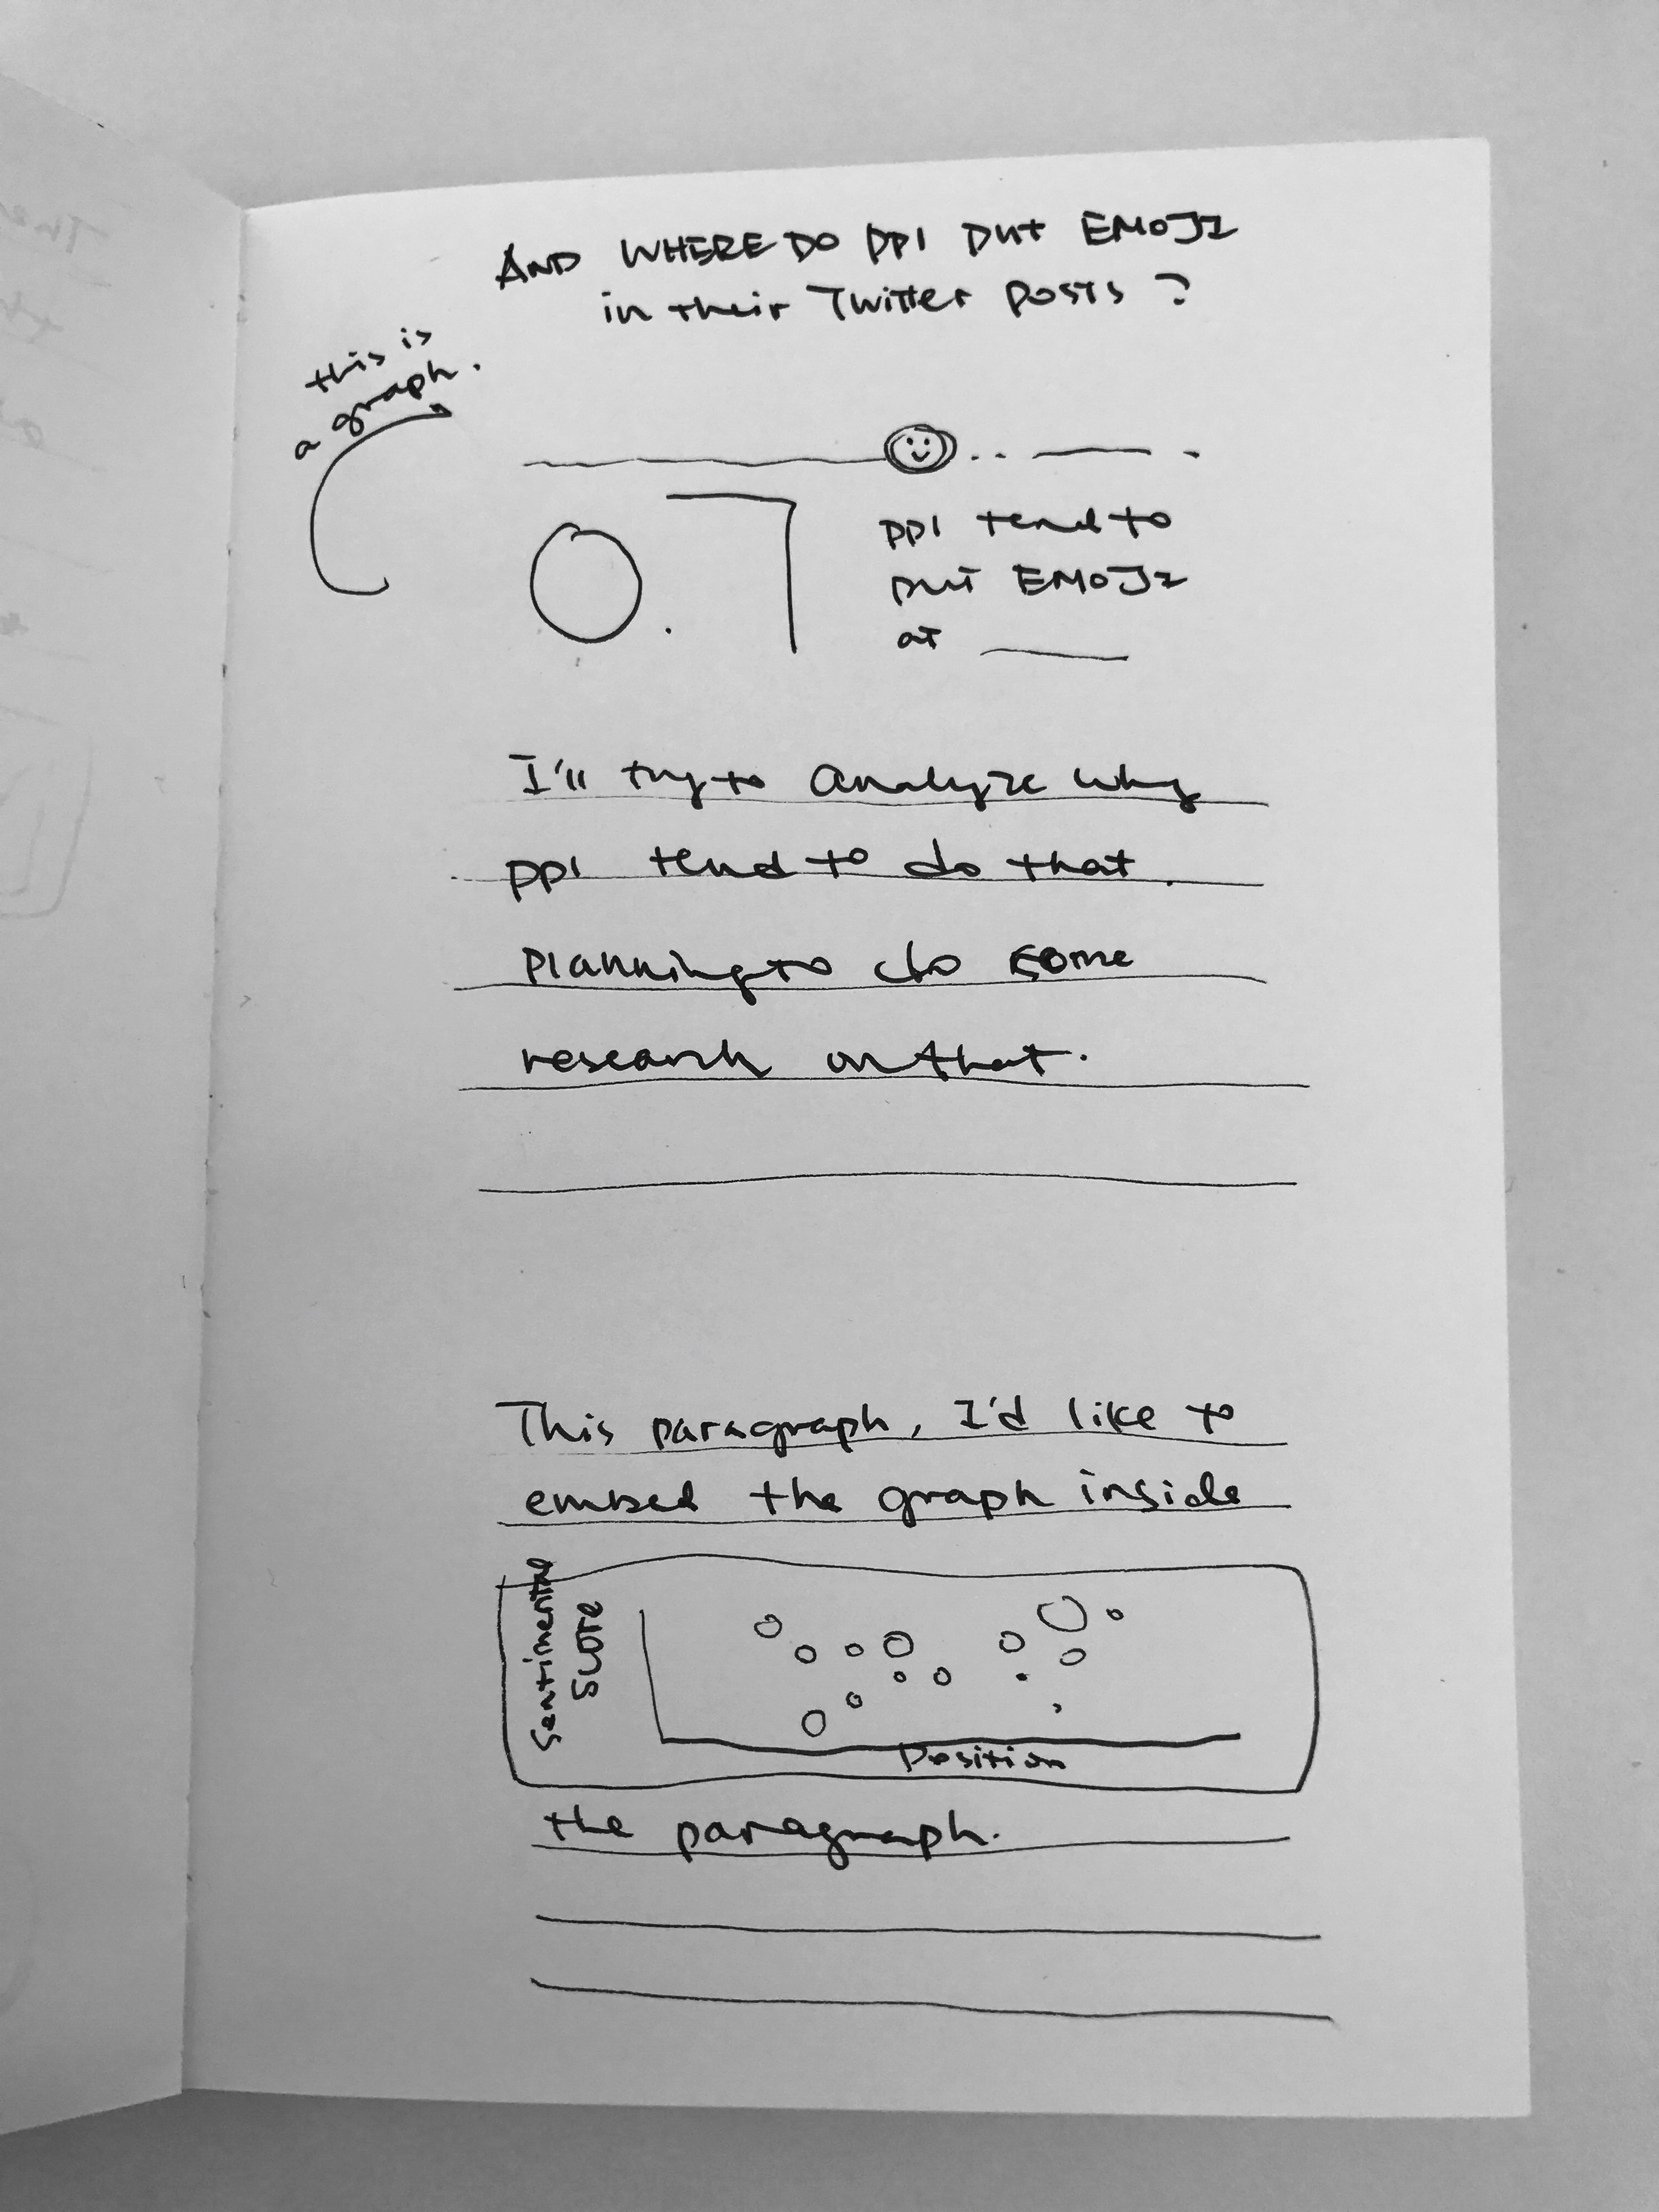 AND WHERE DO ppl put EMOJI
in their Twitter posts ?
this is
a graph.
0.7
ppl tend to
put EMOJI
at
I'll try to analyze why
ppl tend to do that.
planning to do some
research on that.
This paragraph, I'd like to
embed the graph inside
Sentimental
Score
Position
the paragraph.